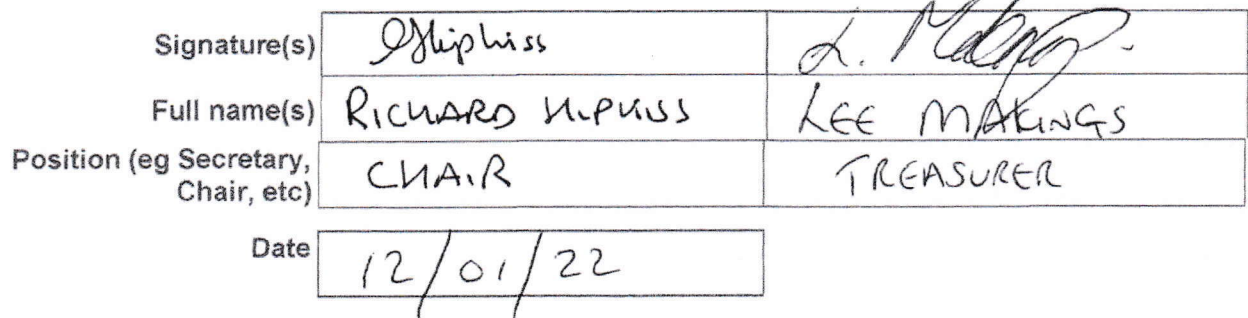 Signature(s) RHipkiss L. Makings
Full name(s) RICHARD HIPKISS LEE MAKINGS
Position (eg Secretary,
Chair, etc) CHAIR TREASURER
Date 12/01/22